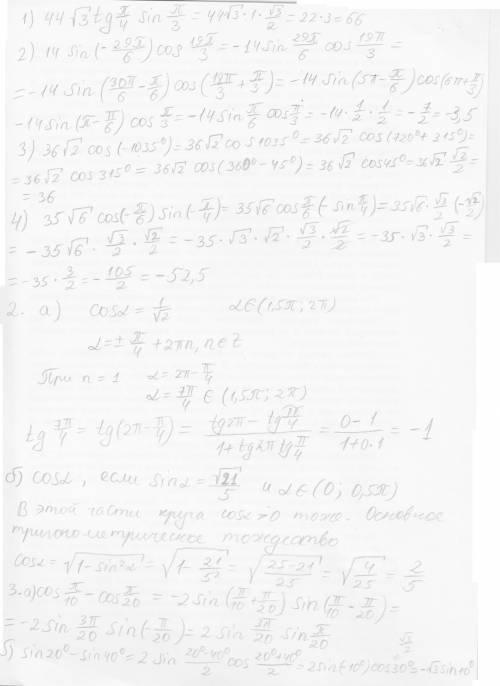 1) 44√3 tg π/4 sin π/3 = 44√3·1·√3/2 = 22·3 = 66
2) 14 sin(-29π/6) cos 19π/3 = -14 sin 29π/6 cos 19π/3 =
= -14 sin(30π/6 - π/6) cos(18π/3 + π/3) = -14 sin(5π - π/6) cos(6π + π/3)
-14 sin(π - π/6) cos π/3 = -14 sin π/6 cos π/3 = -14·1/2·1/2 = -7/2 = -3,5
3) 36√2 cos(-1035°) = 36√2 cos 1035° = 36√2 cos(720° + 315°) =
= 36√2 cos 315° = 36√2 cos(360° - 45°) = 36√2 cos 45° = 36√2 √2/2 =
= 36
4) 35√6 cos(-π/6) sin(-π/4) = 35√6 cos π/6 (-sin π/4) = 35√6·√3/2 (-√2/2)
= -35√6·√3/2·√2/2 = -35·√3·√2·√3/2·√2/2 = -35·√3·√3/2 =
= -35·3/2 = -105/2 = -52,5
2. а) cosα = 1/√2 α∈(1,5π; 2π)
α = ± π/4 + 2πn, n∈Z
При n = 1 α = 2π - π/4
α = 7π/4 ∈ (1,5π; 2π)
tg 7π/4 = tg(2π - π/4) = (tg2π - tg π/4)/(1 + tg2π tg π/4) = (0 - 1)/(1 + 0·1) = -1
б) cosα, если sinα = √21/5 и α∈(0; 0,5π)
В этой части круга cosα >0 тоже. Основное
тригонометрическое тождество
cosα = √(1 - sin²α) = √(1 - 21/5²) = √((25-21)/25) = √(4/25) = 2/5
3. а) cos π/10 - cos π/20 = -2 sin(π/10 + π/20) sin(π/10 - π/20) =
= -2 sin 3π/20 sin(-π/20) = 2 sin 3π/20 sin π/20
√3/2
б) sin 20° - sin 40° = 2 sin (20°-40°)/2 cos (20°+40°)/2 = 2 sin(-10°) cos 30° = -√3 sin 10°